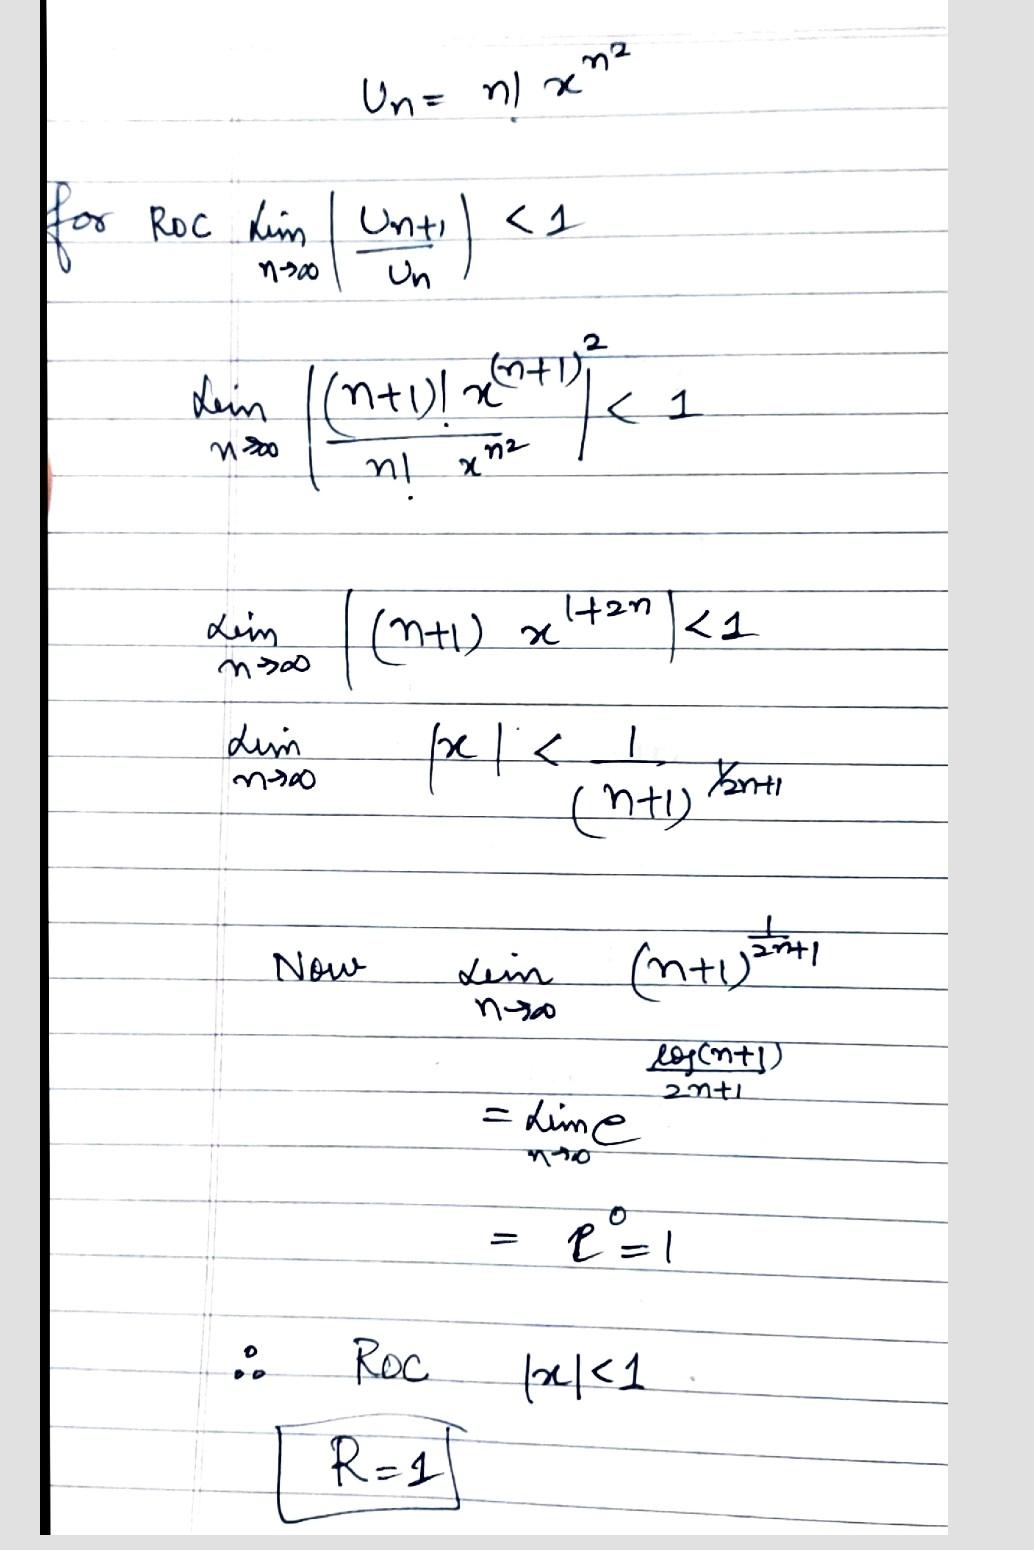 Un = n! x^n²
for ROC Lim n→∞ | Un+1 / Un | < 1
Lim n→∞ | (n+1)! x^(n+1)² / n! x^n² | < 1
Lim n→∞ | (n+1) x^1+2n | < 1
Lim n→∞ |x| < 1 / (n+1)^1/2n+1
Now Lim n→∞ (n+1)^1/2n+1
= Lim n→∞ e^log(n+1)/2n+1
= e^0 = 1
∴ ROC |x| < 1
R = 1